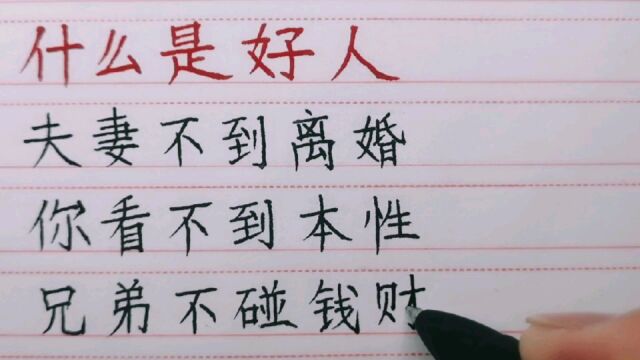 什么是好人
夫妻不到离婚
你看不到本性
兄弟不碰钱财